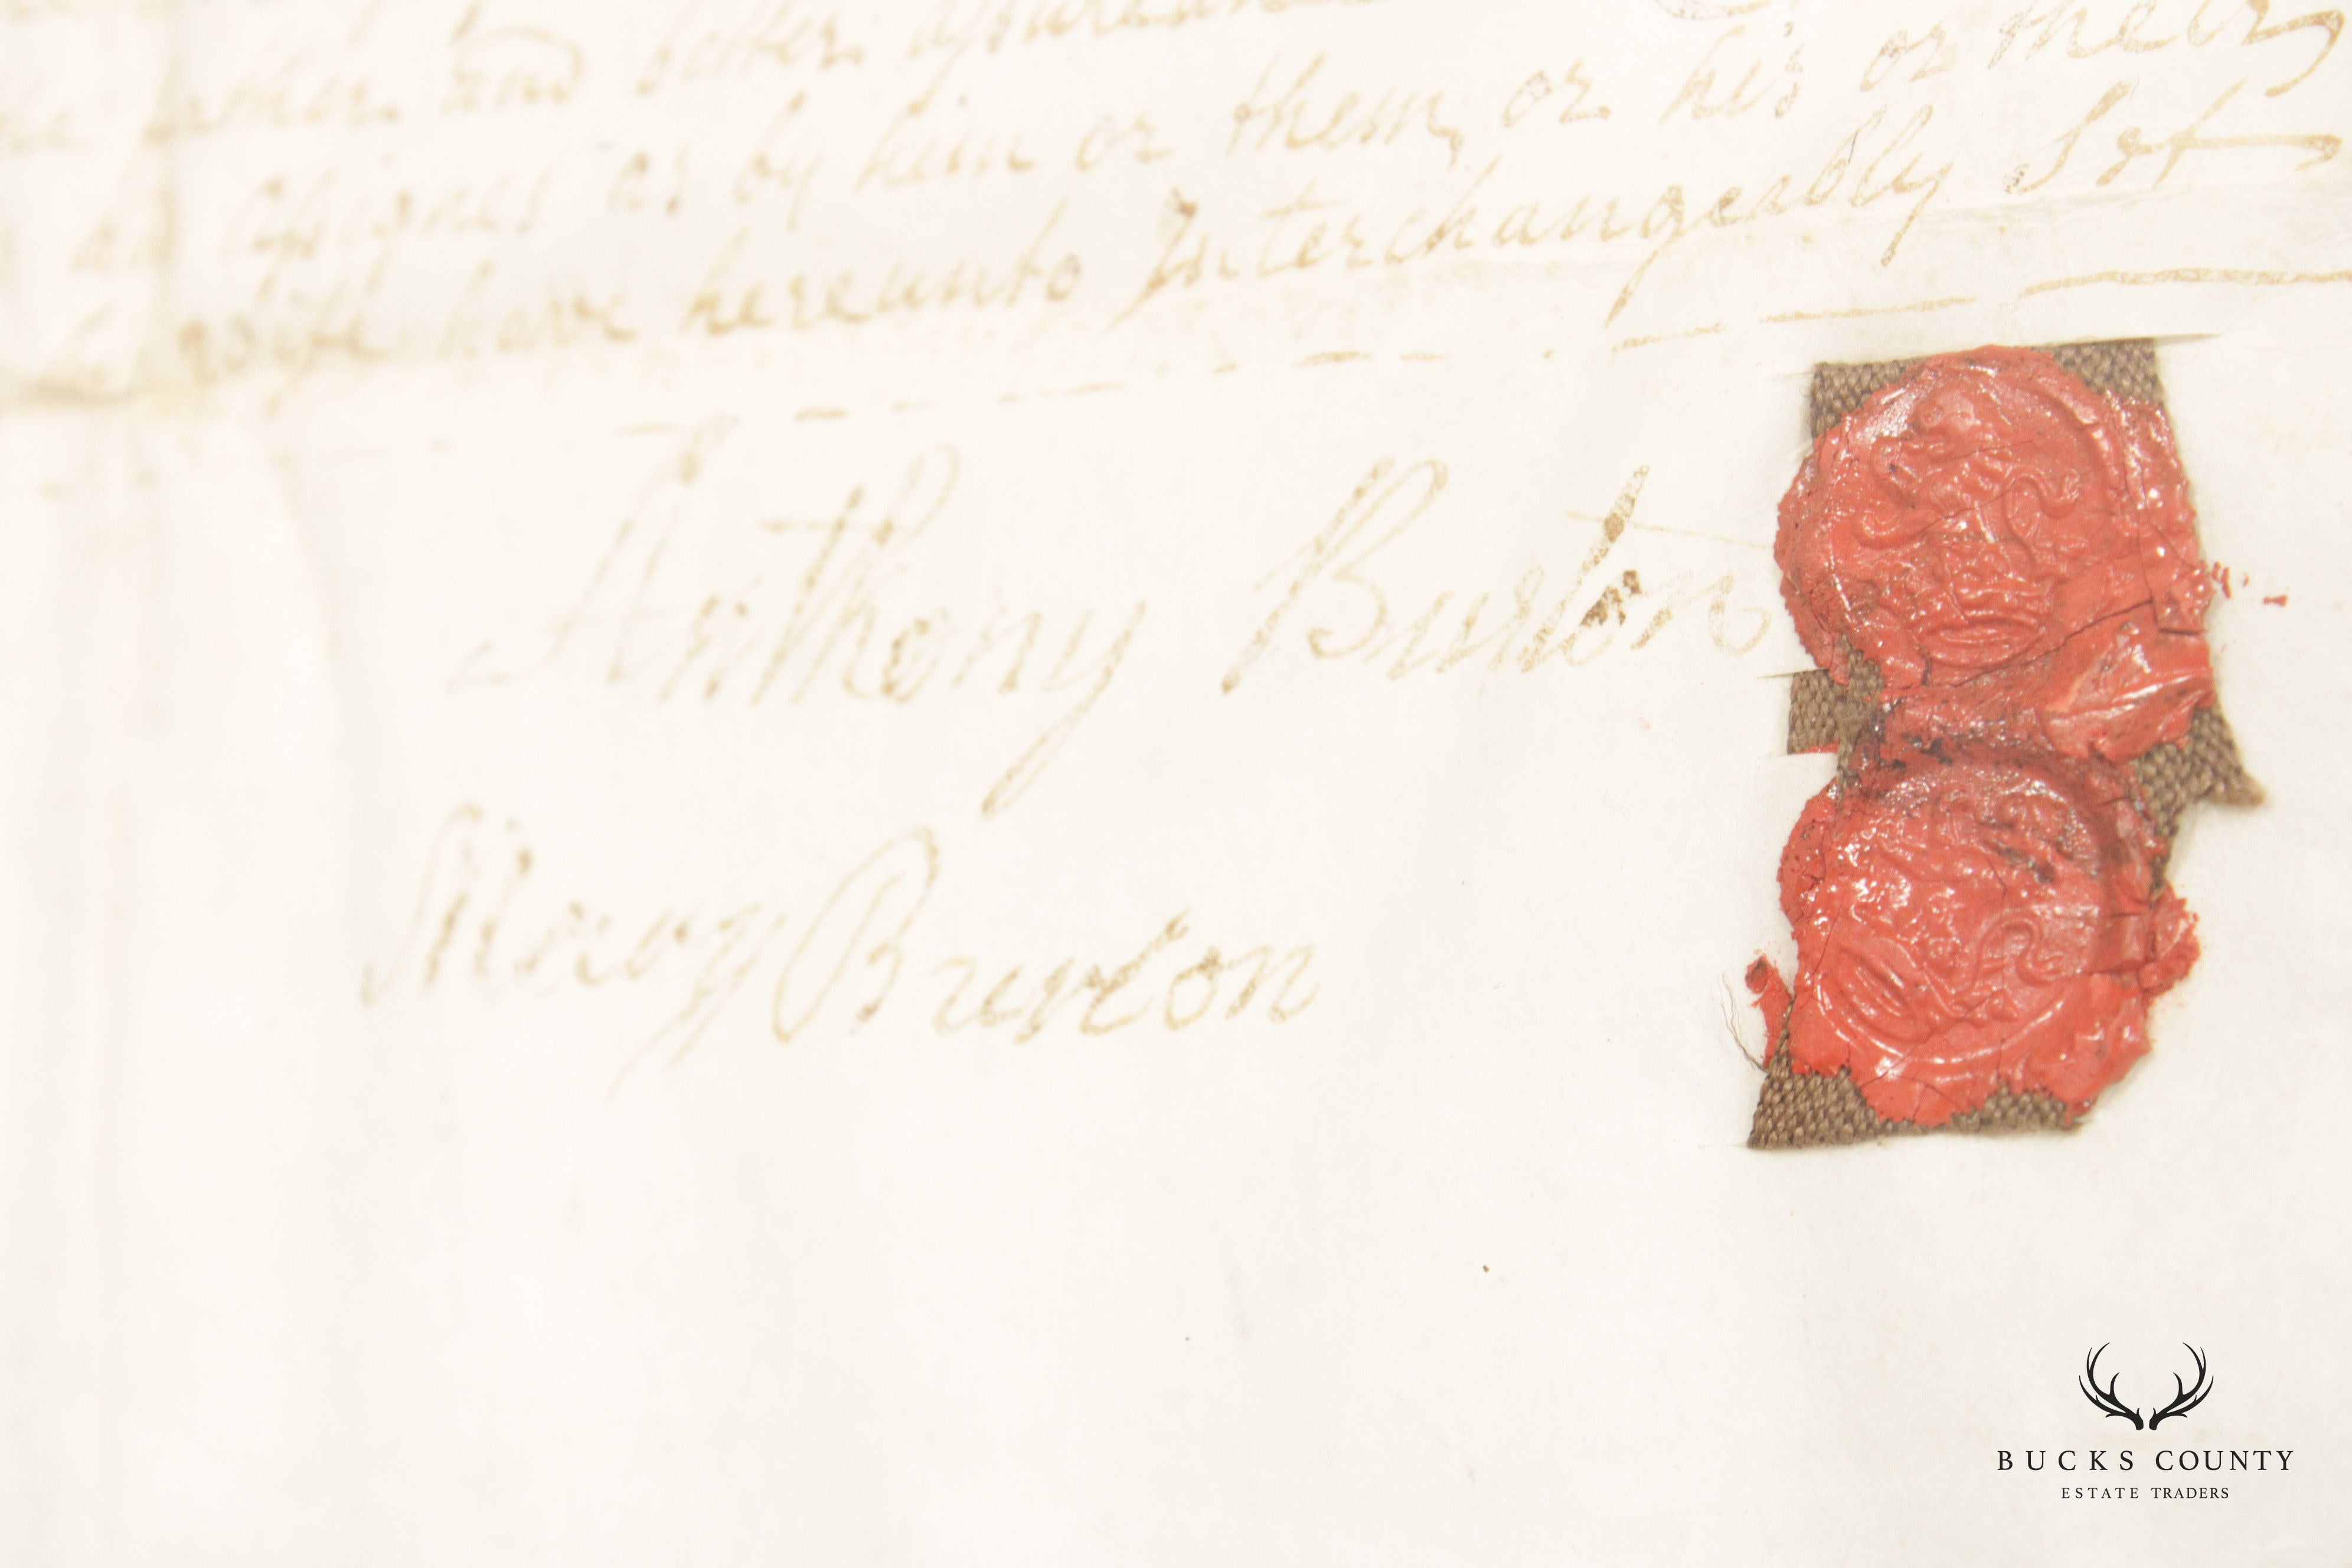 and better assurance
assignes as by him or them, or his or their
wife have hereunto Interchangeably Set
Anthony Burton
Mary Burton
BUCKS COUNTY
ESTATE TRADERS